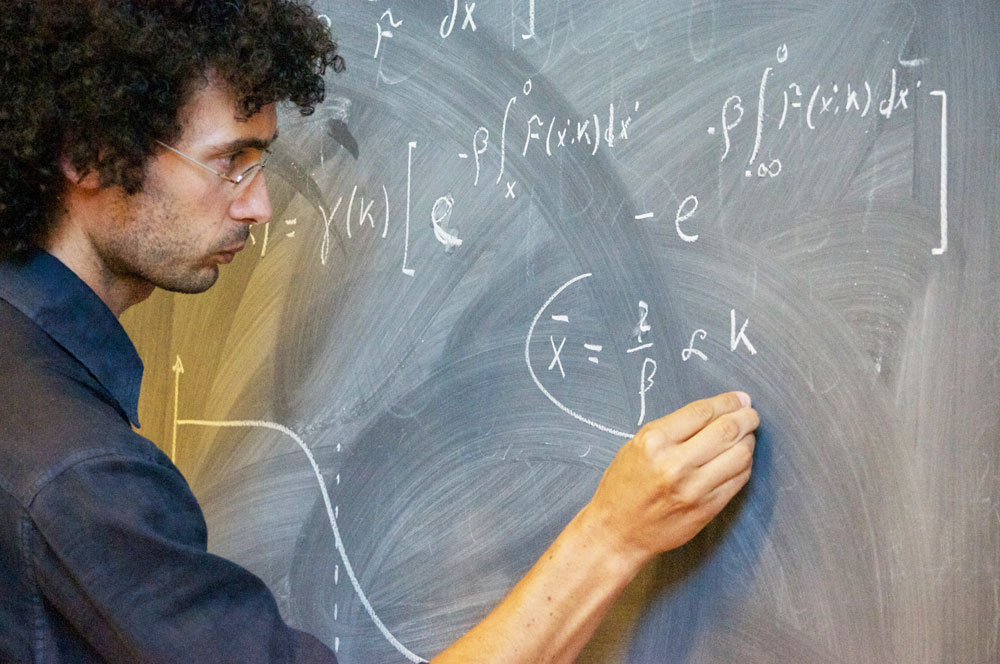 F̃ dx ]
= γ(k) [ e^{-β∫_x^0 F̃(x';k)dx'} - e^{-β∫_{-∞}^0 F̃(x';k)dx'} ]
x̄ = z/β ∝ k